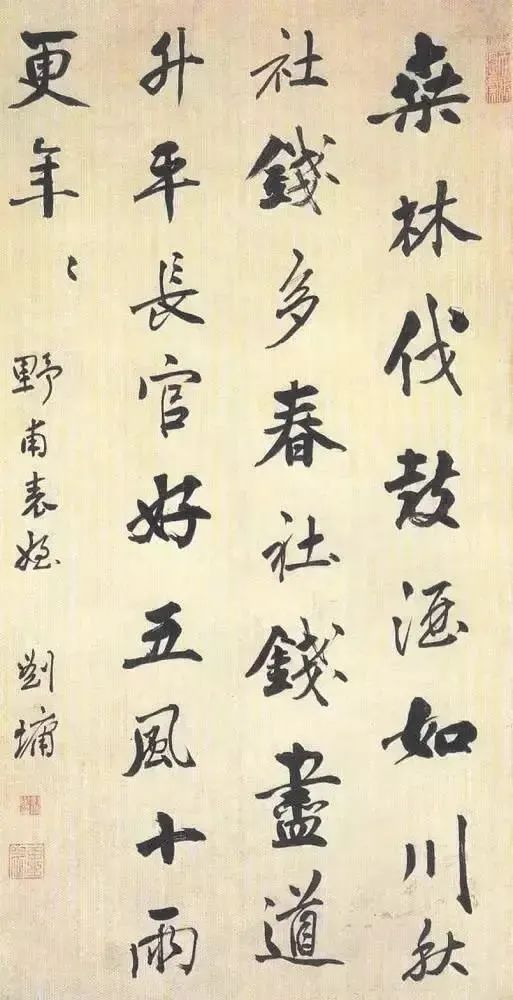 桑林伐鼓酒如川秋
社錢多春社錢盡道
升平長官好五風十雨
更年〻 野甫表姪 劉墉